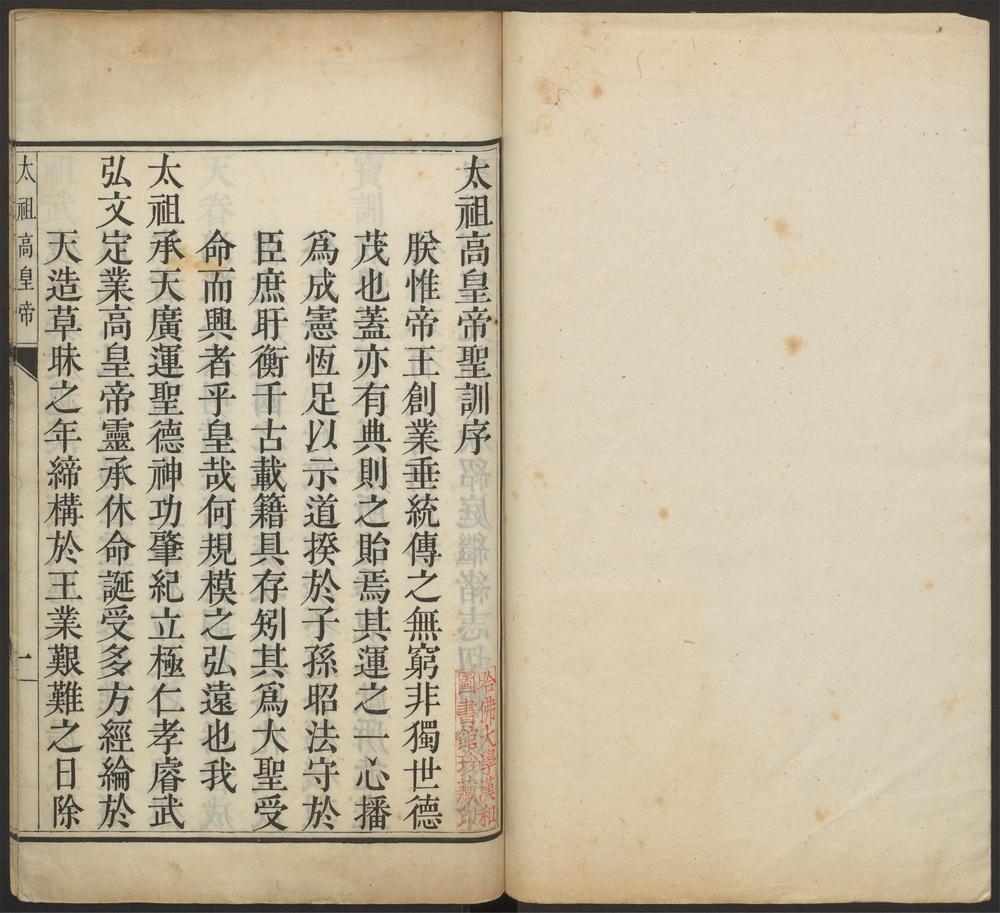 太祖高皇帝聖訓序
朕惟帝王創業垂統傳之無窮非獨世德
茂也蓋亦有典則之貽焉其運之一心播
爲成憲恆足以示道揆於子孫昭法守於
臣庶盱衡千古載籍具存矧其爲大聖受
命而興者乎皇哉何規模之弘遠也我
太祖承天廣運聖德神功肇紀立極仁孝睿武
弘文定業高皇帝靈承休命誕受多方經綸於
天造草昧之年締構於王業艱難之日除
太祖高皇帝
一
哈佛大學漢和
圖書館珍藏印